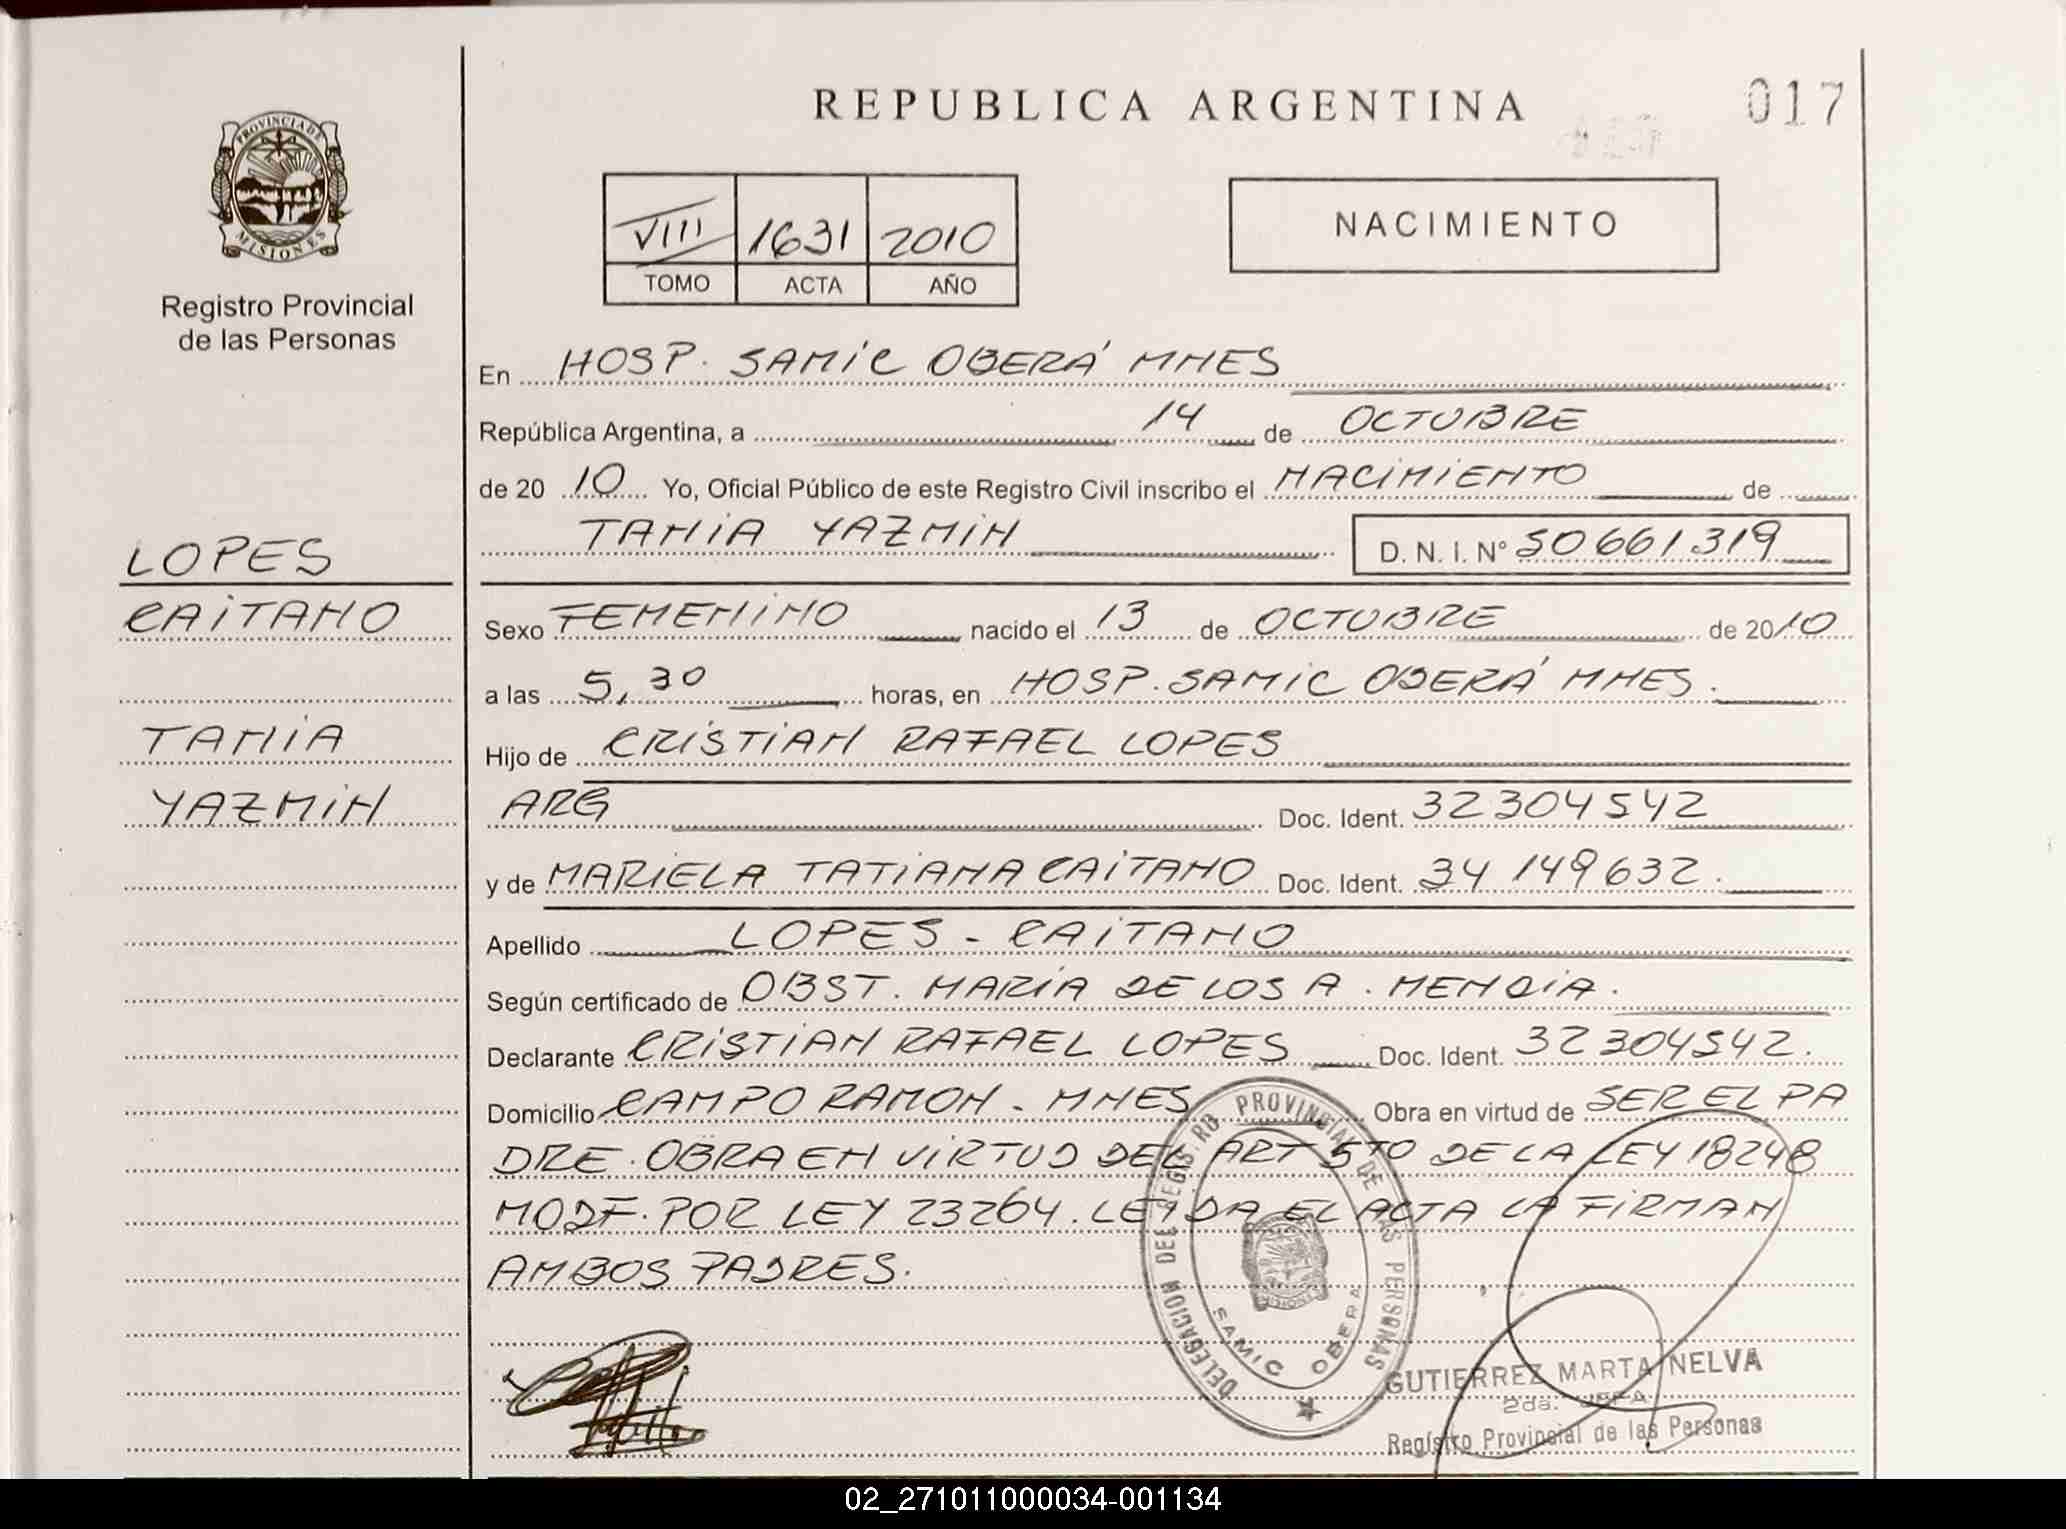 REPUBLICA ARGENTINA
017
PROVINCIA DE
MISIONES
Registro Provincial
de las Personas
VIII 1631 2010
TOMO ACTA AÑO
NACIMIENTO
En HOSP. SAMIC OBERÁ MNES
República Argentina, a 14 de OCTUBRE
de 20 10 Yo, Oficial Público de este Registro Civil inscribo el NACIMIENTO de
TANIA YAZMIN D. N. I. N° 50661319
LOPES
CAITANO
TANIA
YAZMIN
Sexo FEMENINO nacido el 13 de OCTUBRE de 2010
a las 5,30 horas, en HOSP. SAMIC OBERÁ MNES.
Hijo de CRISTIAN RAFAEL LOPES
ARG Doc. Ident. 32304542
y de MARIELA TATIANA CAITANO Doc. Ident. 34 149632.
Apellido LOPES - CAITANO
Según certificado de OBST. MARIA DE LOS A. MENDIA.
Declarante CRISTIAN RAFAEL LOPES Doc. Ident. 32304542.
Domicilio CAMPO RAMON - MNES Obra en virtud de SER EL PA
DRE. OBRA EN VIRTUD DEL ART 5TO DE LA LEY 18248
MODF. POR LEY 23264. LEIDA EL ACTA LA FIRMAN
AMBOS PADRES.
DELEGACION DEL REGISTRO PROVINCIAL DE LAS PERSONAS
SAMIC OBERA
GUTIERREZ MARTA NELVA
2da. JEFA
Registro Provincial de las Personas
02_271011000034-001134